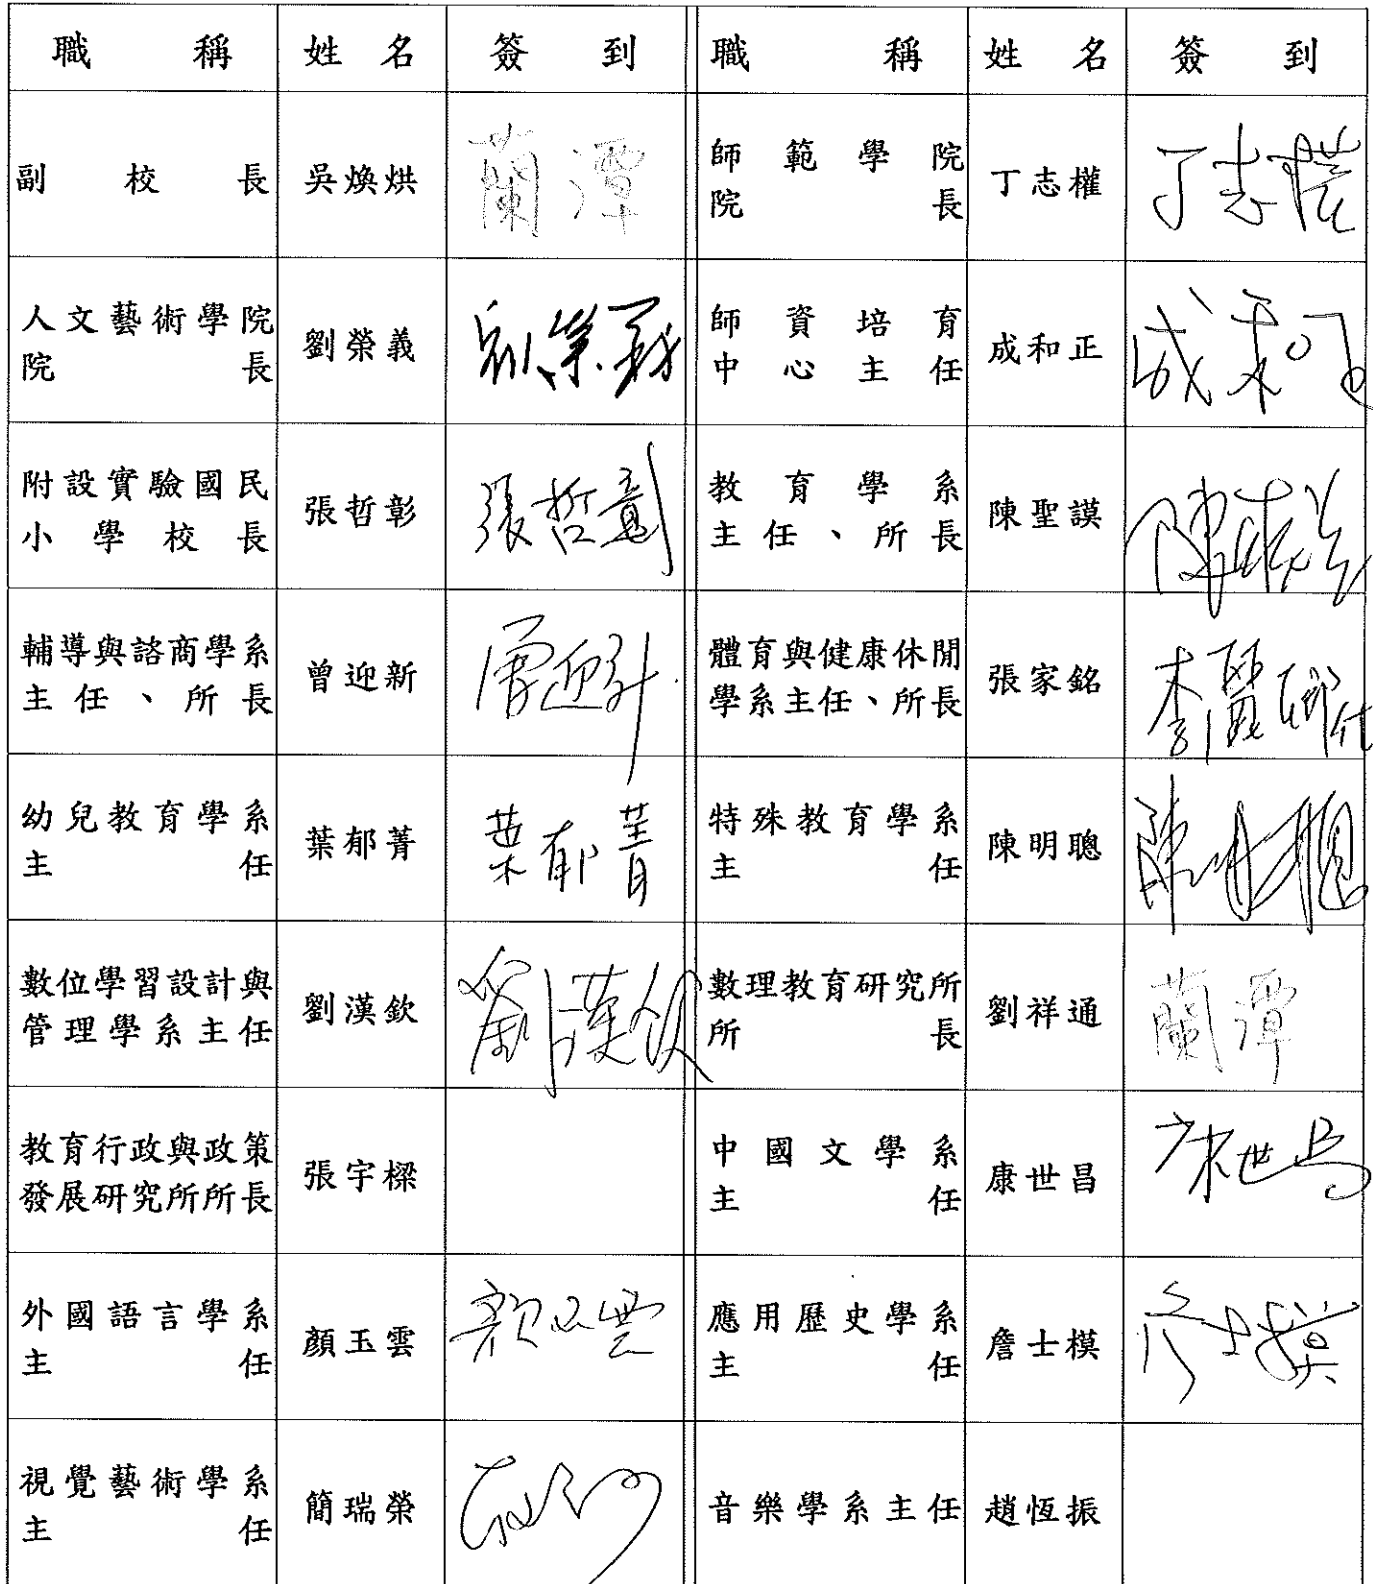 職稱 姓名 簽到 職稱 姓名 簽到
副校長 吳煥烘 蘭潭 師範學院院長 丁志權 丁志權
人文藝術學院院長 劉榮義 劉榮義 師資培育中心主任 成和正
附設實驗國民小學校長 張哲彰 張哲彰 教育學系主任、所長 陳聖謨
輔導與諮商學系主任、所長 曾迎新 曾迎新 體育與健康休閒學系主任、所長 張家銘
幼兒教育學系主任 葉郁菁 葉郁菁 特殊教育學系主任 陳明聰 陳明聰
數位學習設計與管理學系主任 劉漢欽 劉漢欽 數理教育研究所所長 劉祥通 蘭潭
教育行政與政策發展研究所所長 張宇樑 中國文學系主任 康世昌 康世昌
外國語言學系主任 顏玉雲 顏玉雲 應用歷史學系主任 詹士模
視覺藝術學系主任 簡瑞榮 音樂學系主任 趙恆振